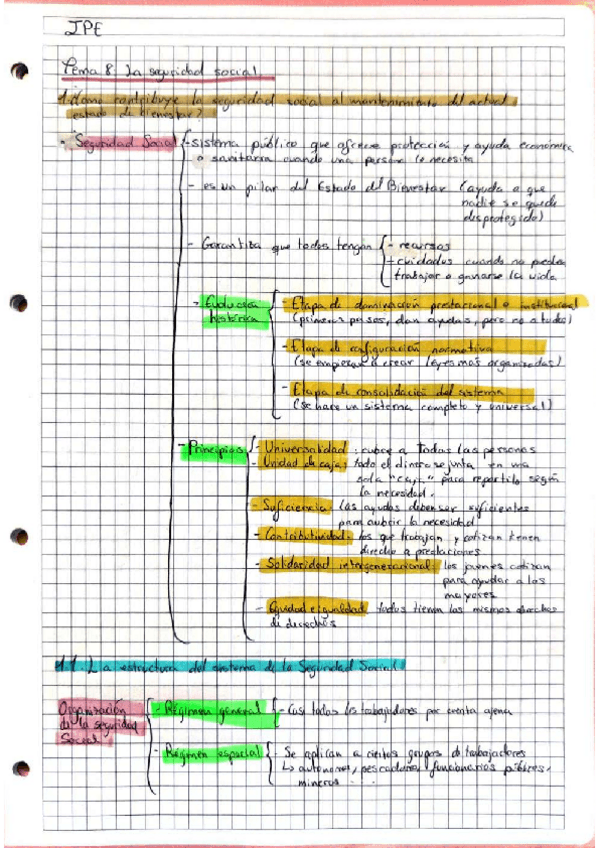 IPE
Tema 8: La seguridad social
1. ¿Como contribuye la seguridad social al mantenimiento del actual
estado de bienestar?
- Seguridad Social
- sistema público que ofrece protección y ayuda económica
o sanitaria cuando una persona lo necesita
- es un pilar del Estado del Bienestar (ayuda a que
nadie se quede
desprotegido)
- Garantiza que todos tengan
- recursos
+ cuidados cuando no puedan
trabajar o ganarse la vida
- Evolución
histórica
- Etapa de dominación prestacional o institucional
(primeros pasos, dan ayudas, pero no a todos)
- Etapa de configuración normativa
(se empiezan a crear leyes más organizadas)
- Etapa de consolidación del sistema
(se hace un sistema completo y universal)
- Principios
- Universalidad: cubre a todas las personas
- Unidad de caja: todo el dinero se junta en una
sola "caja" para repartirlo según
la necesidad.
- Suficiencia: las ayudas deben ser suficientes
para cubrir la necesidad
- Contributividad: los que trabajan y cotizan tienen
derecho a prestaciones
- Solidaridad intergeneracional: los jóvenes cotizan
para ayudar a los
mayores
- Equidad e igualdad todos tienen los mismos
de derechos
1.1. La estructura del sistema de la Seguridad Social
Organización
de la seguridad
Social
- Régimen general
- Casi todos los trabajadores por cuenta ajena
- Régimen especial
- Se aplican a ciertos grupos de trabajadores
↳ autónomos, pescadores, funcionarios públicos,
mineros ...